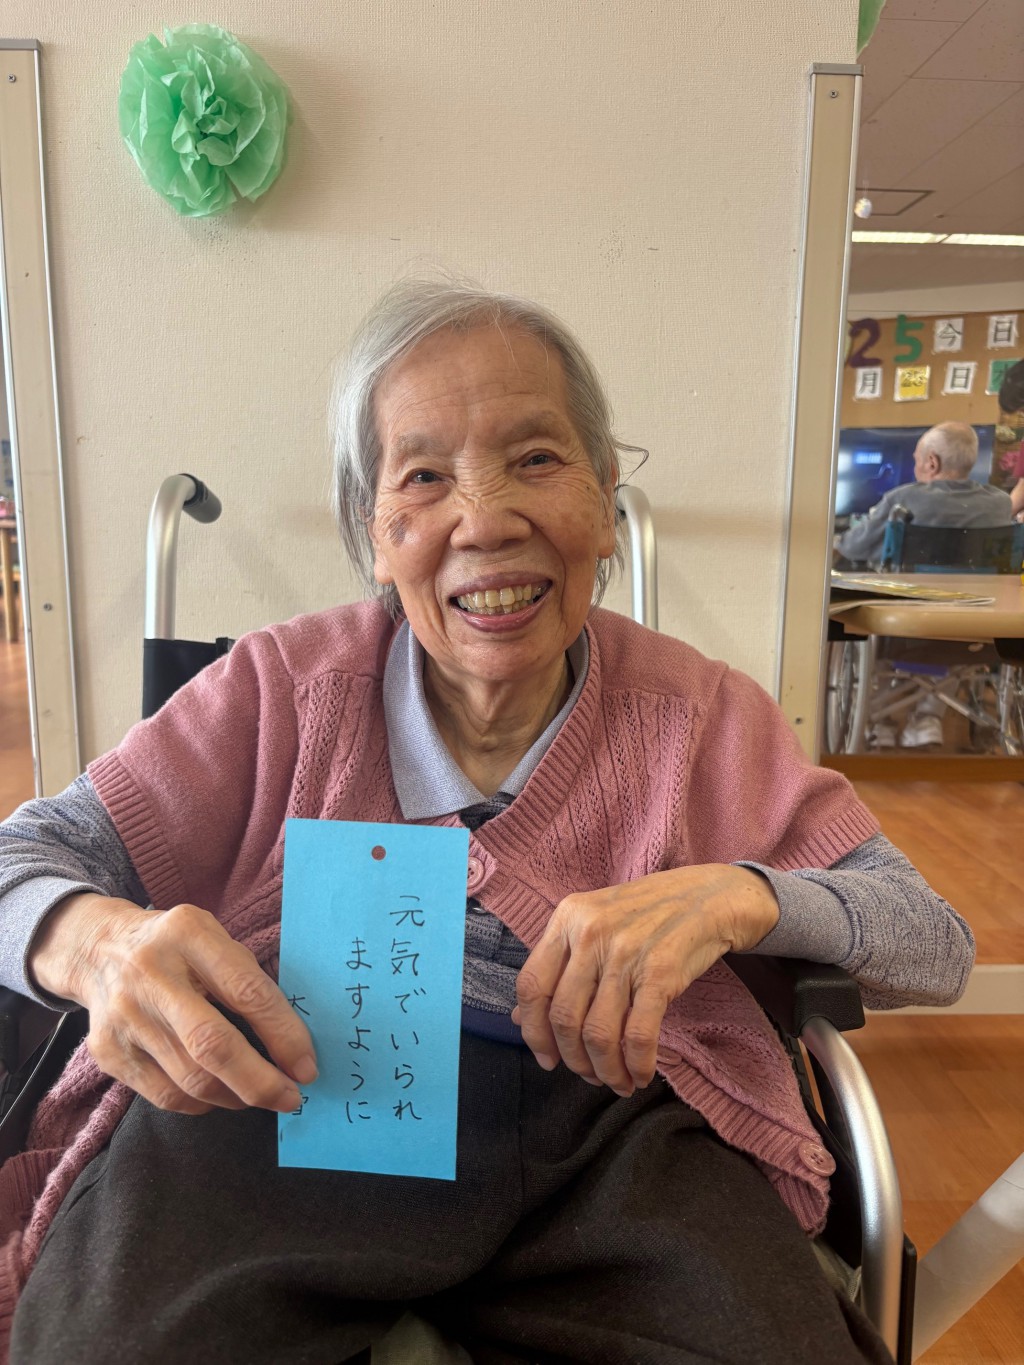 元気でいられ
ますように
25 今日
月 日